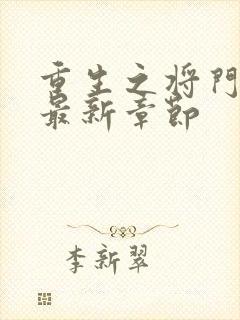 重生之将门
最新章节
李新翠